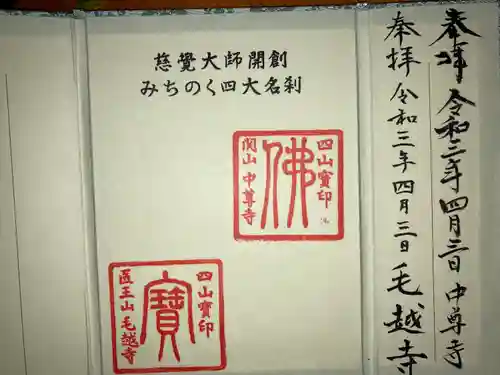 奉拝 令和三年 四月三日 中尊寺
奉拝 令和三年 四月三日 毛越寺
慈覺大師開創
みちのく四大名刹
四山寶印
佛
関山 中尊寺
四山寶印
寶
医王山 毛越寺